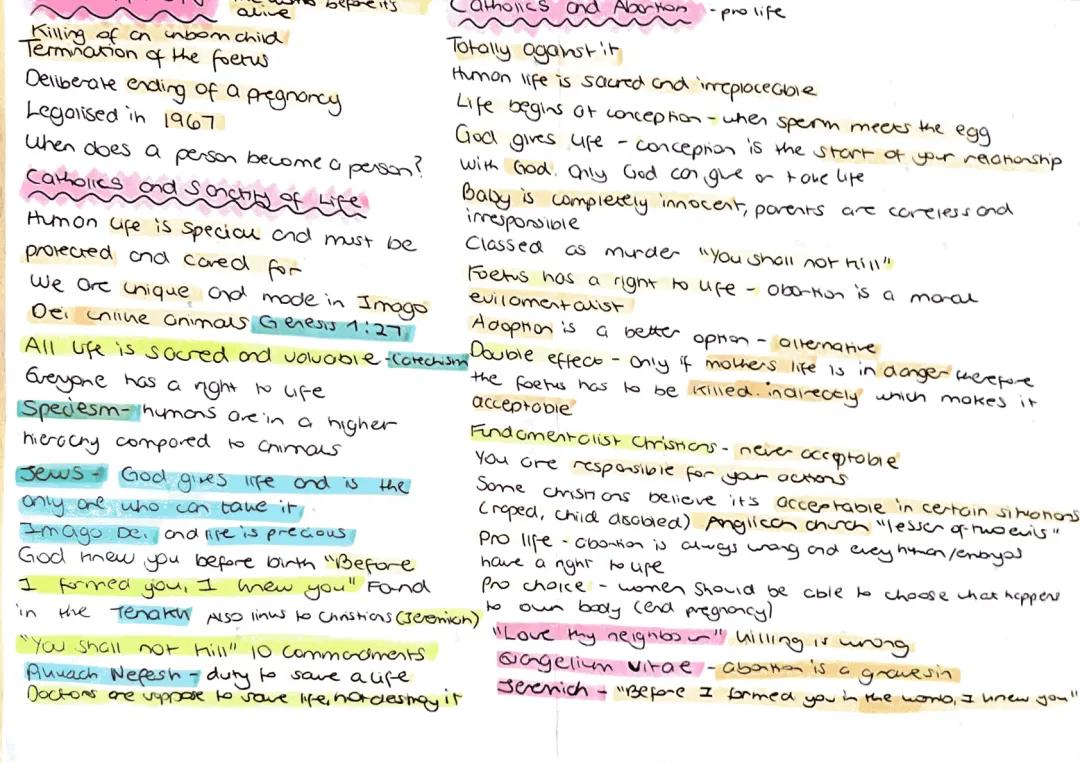 before it's
alive
Killing of an unborn child
Termination of the foetus
Deliberate ending of a pregnancy
Legalised in 1967
When does a person become a person?
Catholics and Sanctity of Life
Human life is special and must be
protected and cared for
We are unique and made in Imago
Dei unlike animals Genesis 1:27
All life is sacred and valuable - Catechism
Everyone has a right to life
Speciesm - humans are in a higher
hierachy compared to animals
Jews - God gives life and is the
only one who can take it
Imago Dei and life is precious
God knew you before birth "Before
I formed you, I knew you" Found
in the Tenakh Also links to Christians (Jeremiah)
"You shall not kill" 10 commandments
Pikuach Nefesh - duty to save a life
Doctors are suppose to save life, not destroy it
Catholics and Abortion - pro life
Totally against it
Human life is sacred and irreplaceable
Life begins at conception - when sperm meets the egg
God gives life - conception is the start of your relationship
with God. Only God can give or take life
Baby is completely innocent, parents are careless and
irresponsible
Classed as murder "You shall not kill"
Foetus has a right to life - abortion is a moral
evil
Adoption is a better option - alternative
Double effect - only if mothers life is in danger therefore
the foetus has to be killed indirectly which makes it
acceptable
Fundamentalist Christians - never acceptable
You are responsible for your actions
Some christians believe it's acceptable in certain sitations
(raped, child disabled) Anglican church "lesser of two evils"
Pro life - abortion is always wrong and every human/embyos
have a right to life
Pro choice - women should be able to choose what happens
to own body (end pregnancy)
"Love thy neighbour" killing is wrong
Evangelium Vitae - abortion is a grave sin
Jeremiah - "Before I formed you in the womb, I knew you"